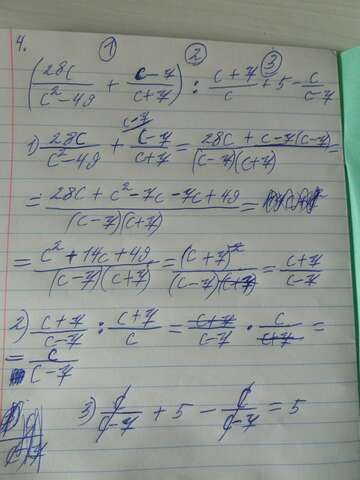 4. ① ② ③
(28c/(c²-49) + (c-7)/(c+7)) : (c+7)/c + 5 - c/(c-7)
1) 28c/(c²-49) + (c-7)/(c+7) = (28c + c-7(c-7))/((c-7)(c+7)) =
= (28c + c² - 7c - 7c + 49)/((c-7)(c+7)) =
= (c² + 14c + 49)/((c-7)(c+7)) = (c+7)²/((c-7)(c+7)) = (c+7)/(c-7)
2) (c+7)/(c-7) : (c+7)/c = (c+7)/(c-7) · c/(c+7) =
= c/(c-7)
3) c/(c-7) + 5 - c/(c-7) = 5